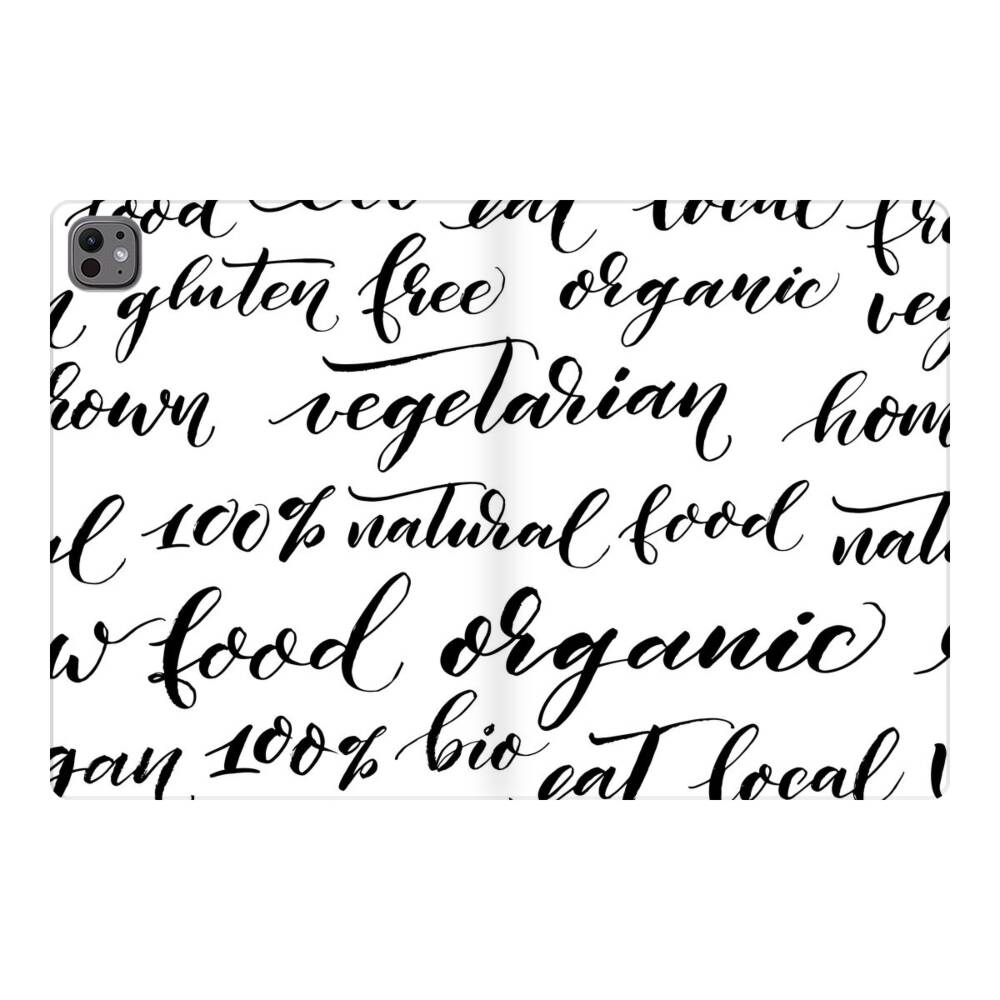 food eat local fr
gluten free organic veg
hown vegetarian hom
al 100% natural food natu
w food organic
gan 100% bio eat local